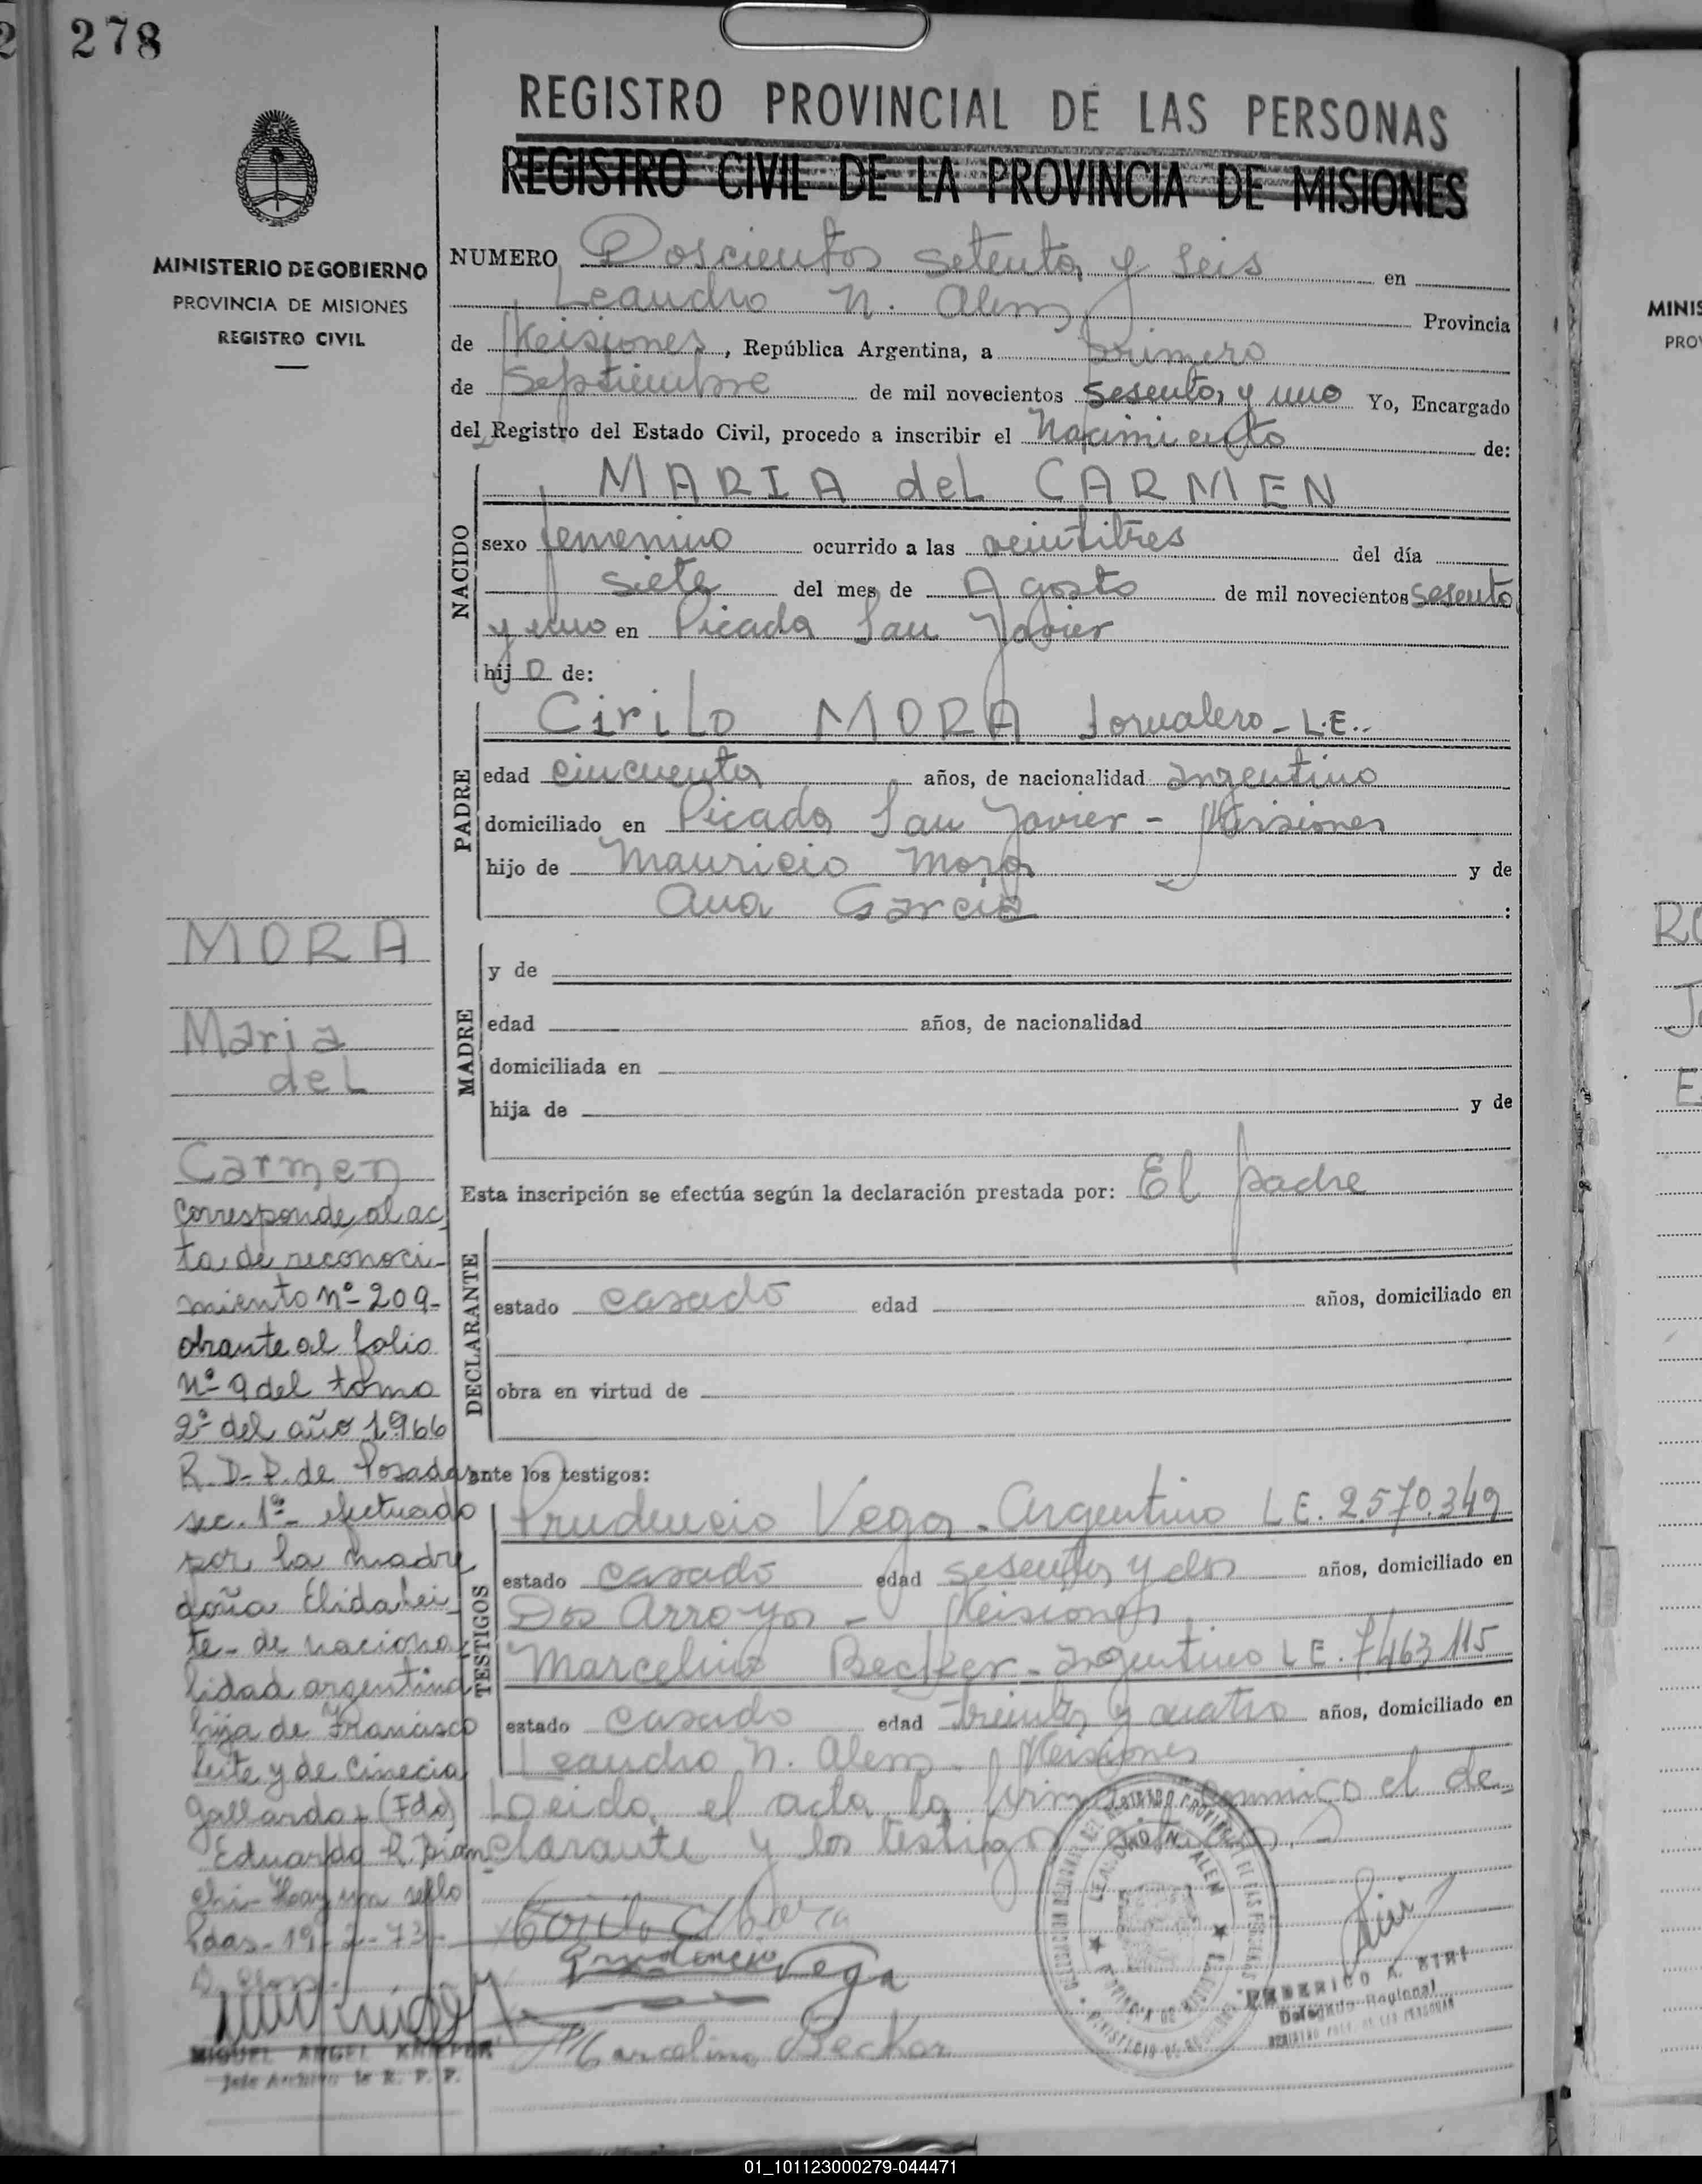 278
REGISTRO PROVINCIAL DE LAS PERSONAS
REGISTRO CIVIL DE LA PROVINCIA DE MISIONES
MINISTERIO DE GOBIERNO
PROVINCIA DE MISIONES
REGISTRO CIVIL
NUMERO Doscientos setenta y seis en
Leandro N. Alem Provincia
de Misiones, República Argentina, a primero
de Septiembre de mil novecientos sesenta y uno Yo, Encargado
del Registro del Estado Civil, procedo a inscribir el Nacimiento de:
NACIDO
MARIA del CARMEN
sexo femenino ocurrido a las veintitres del día
siete del mes de Agosto de mil novecientos sesenta
y uno en Picada San Javier
hij a de:
PADRE
Cirilo MORA Jornalero - L.E..
edad cincuenta años, de nacionalidad argentino
domiciliado en Picada San Javier - Misiones
hijo de Mauricio Mora y de
Ana Garcia :
MADRE
y de
edad años, de nacionalidad
domiciliada en
hija de y de
Esta inscripción se efectúa según la declaración prestada por: El padre
DECLARANTE
estado casado edad años, domiciliado en
obra en virtud de
ante los testigos:
TESTIGOS
Prudencio Vega - Argentino L E. 2.570.349
estado casado edad sesenta y dos años, domiciliado en
Dos Arroyos - Misiones
Marcelino Becker - argentino L E. 7463115
estado casado edad treinta y cuatro años, domiciliado en
Leandro N. Alem - Misiones
Leida el acta la firman conmigo el de-
clarante y los testigos citados.
Cirilo Mora
Prudencio Vega
Marcelino Beckar
FEDERICO A. BIRI
Delegado Regional
MORA
Maria
del
Carmen
Corresponde al ac
ta de reconoci-
miento nº 209-
obrante al folio
nº 9 del tomo
2º del año 1966
R.D.P. de Posadas
sec. 1ª efectuado
por la madre
doña Elida Lei
te - de naciona
lidad argentina
hija de Francisco
Leite y de Cinecia
Gallardo - (Fdo)
Eduardo R.
Hay un sello
Pdas - 19-2-73-
MIGUEL ANGEL
Jefe Archivo R. P. P.
MINIS
PROV
01_101123000279-044471